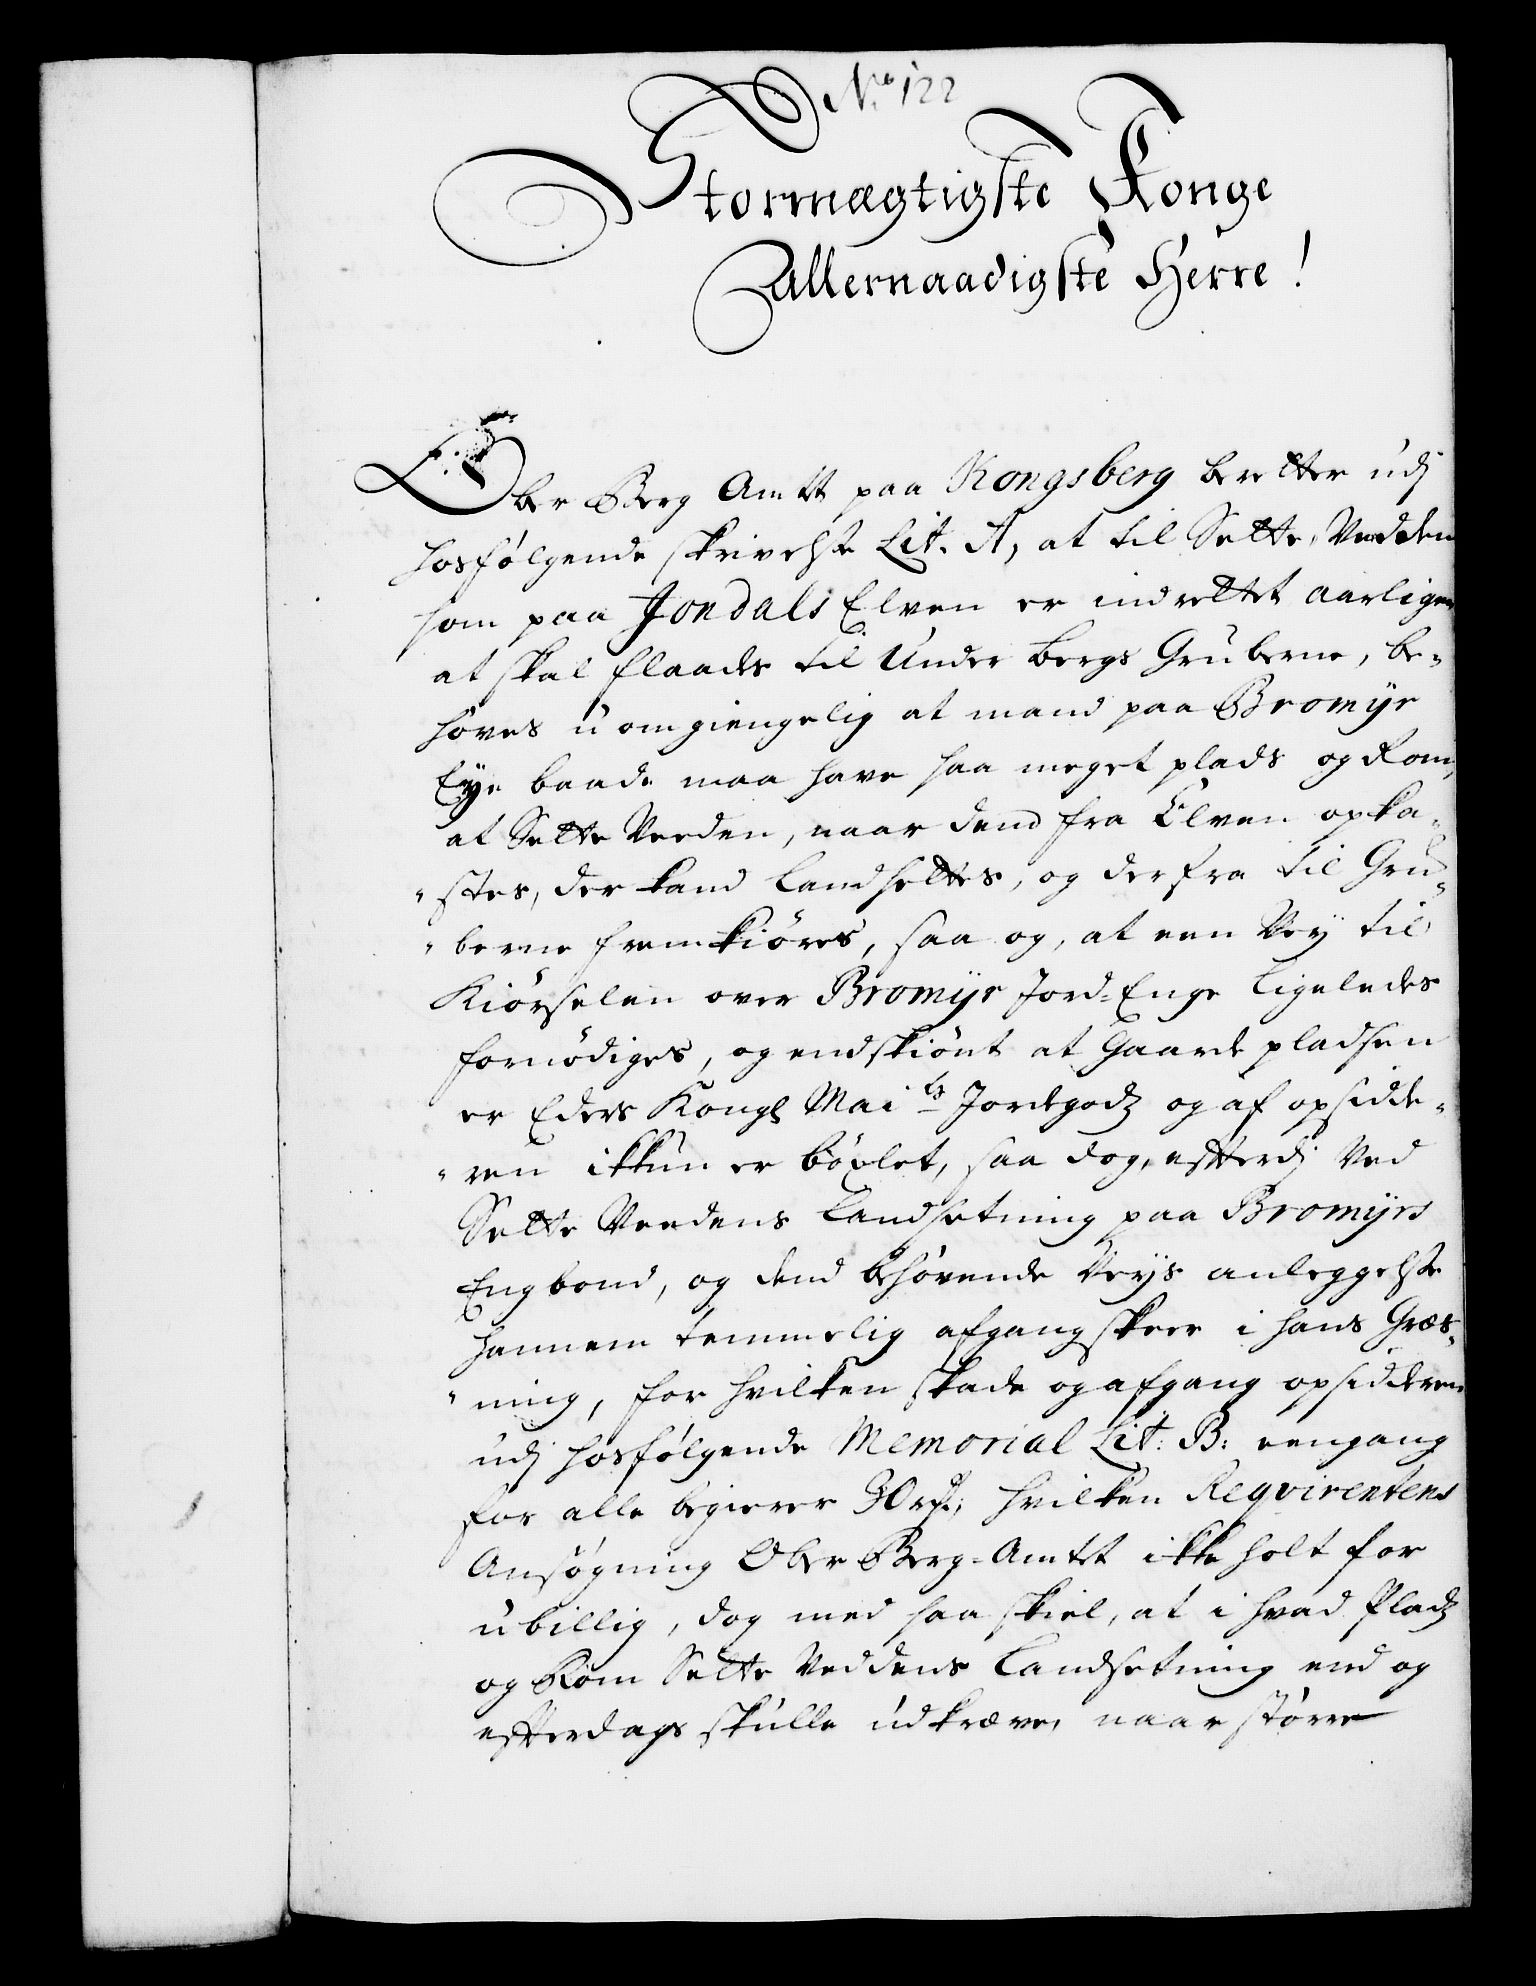 No 122
Stormægtigste Konge
Allernaadigste Herre!
Ober Berg Amtt paa Kongsberg beretter udj
hosfølgende skrivelse Lit. A, at til Sette-Vedden
som paa Jondals Elven er indrettet aarligen
at skal flaades til Under bergs Gruberne, be-
høves uomgiengelig at mand paa Bromyr
Eye baade maa have saa meget plads og Rom,
at Sette Veeden, naar dend fra Elven opka-
"stes, der kand landsettes, og derfra til Gru-
"berne fremkiøres, saa og, at een Vey til
Kiørselen over Bromyr Jord-Enge ligeledes
fornødiges, og endskiønt at Gaarde pladsen
er Eders Kongl Maits Jordegodz og af opsidde-
"ren ikkun er bøxlet, saa dog, efterdj Ved
Sette Veedens Landsetning paa Bromyrs
Engbond, og dend behøvende Veys anleggelse
hannem temmelig afgang skeer i hans Græs-
"ning, for hvilken skade og afgang opsidderen
udj hosfølgende Memorial Lit: B: eengang
for alle begierer 30 rd; hvilken Reqvirentens
Ansøgning Ober Berg-Amtet ikke holt for
ubillig, dog med saa skiel, at i hvad Pladz
og Rom Sette Veddens Landsetning end og
efterdags skulle udkræve, naar større